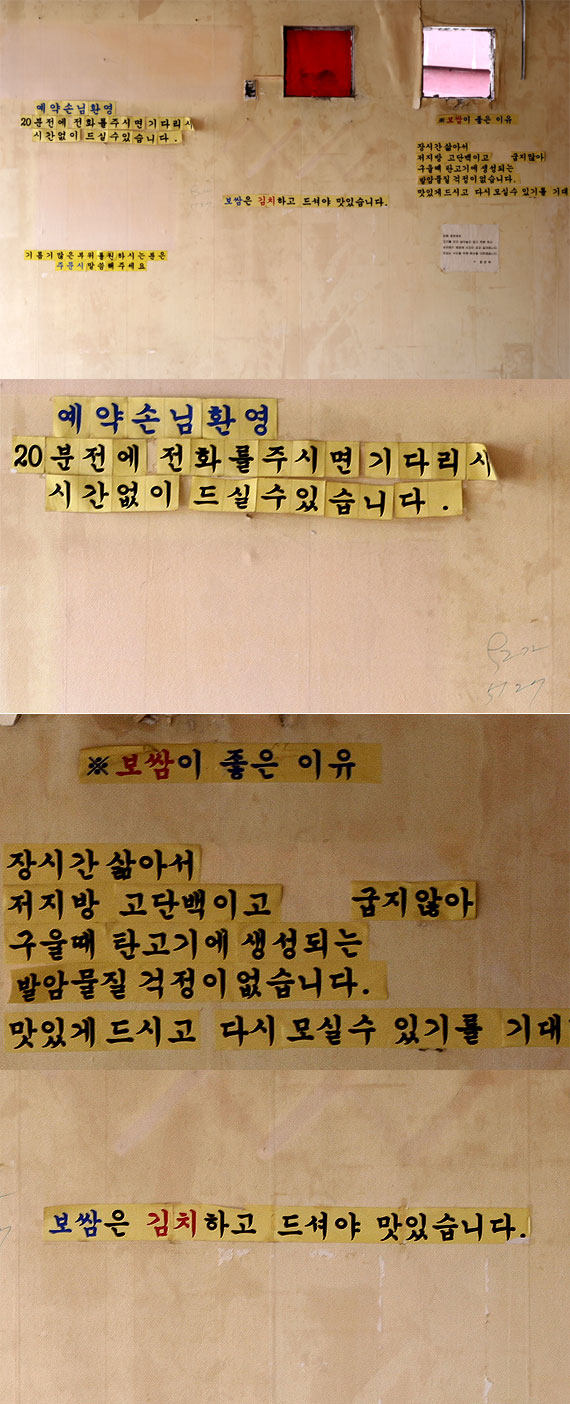 예약손님환영
20분전에 전화를주시면 기다리시
시간없이 드실수있습니다.
기름기많은부위를원하시는분은
주문시말씀해주세요
보쌈은 김치하고 드셔야 맛있습니다.
※보쌈이 좋은 이유
장시간 삶아서
저지방 고단백이고 굽지않아
구울때 탄고기에 생성되는
발암물질 걱정이 없습니다.
맛있게 드시고 다시 모실수 있기를 기대
예약손님환영
20분전에 전화를주시면 기다리시
시간없이 드실수있습니다.
※보쌈이 좋은 이유
장시간 삶아서
저지방 고단백이고 굽지않아
구울때 탄고기에 생성되는
발암물질 걱정이 없습니다.
맛있게 드시고 다시 모실수 있기를 기대
보쌈은 김치하고 드셔야 맛있습니다.